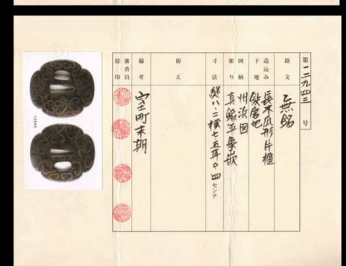 第一二九四三号
銘文
無銘
造込み
長木瓜形片櫃
下地
鉄磨地
図柄
州浜図
彫り
真鍮平象嵌
寸法
縦八・二横七・五耳〇・四センチ
拵え
備考
室町末期
審査員